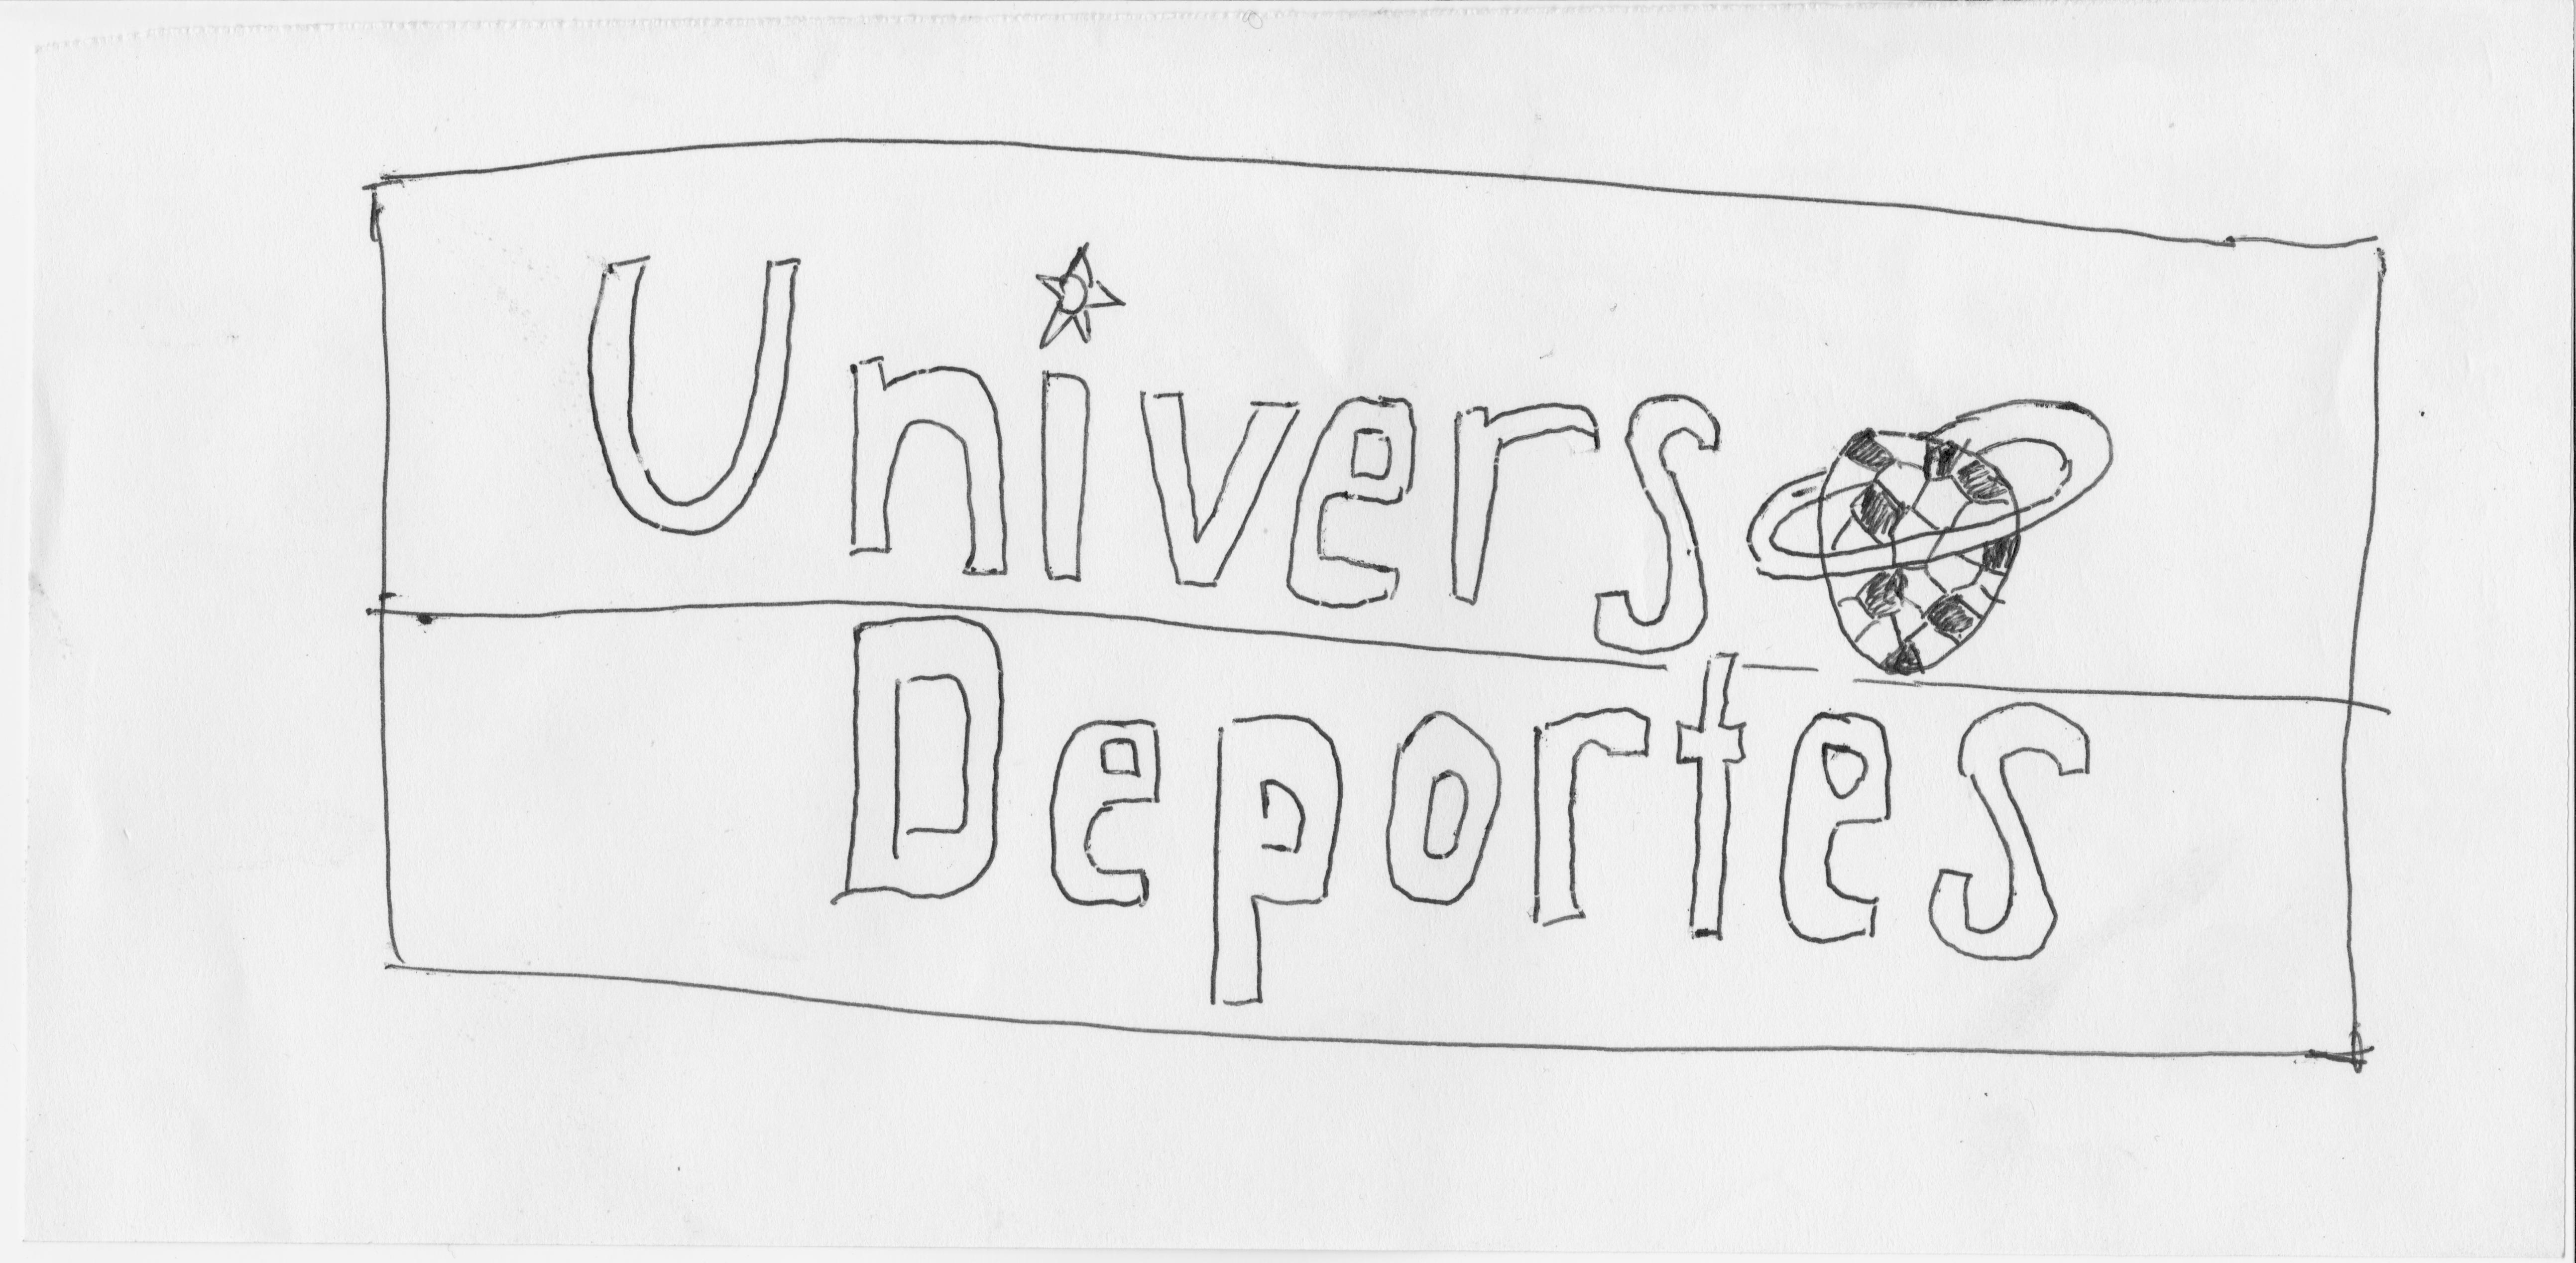 Universo
Deportes